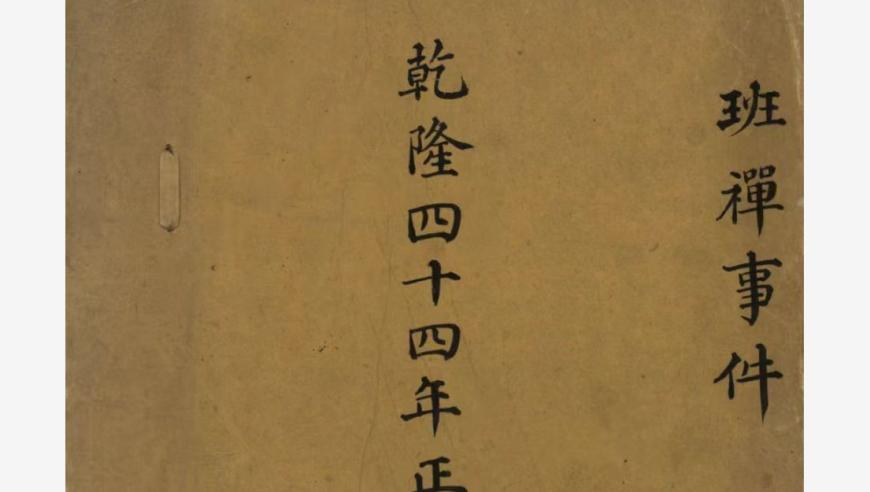 班禪事件
乾隆四十四年正